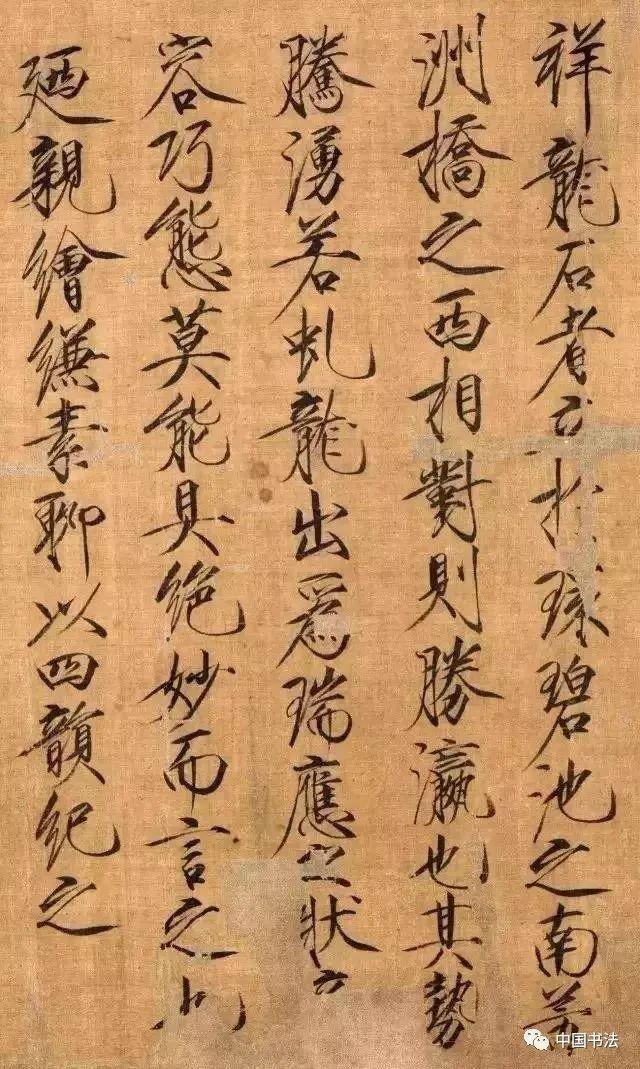 祥龍石者立於環碧池之南芳
洲橋之西相對則勝瀛也其勢
騰湧若虬龍出為瑞應之狀奇
容巧態莫能具絕妙而言之也
廼親繪縑素聊以四韻紀之
中国书法